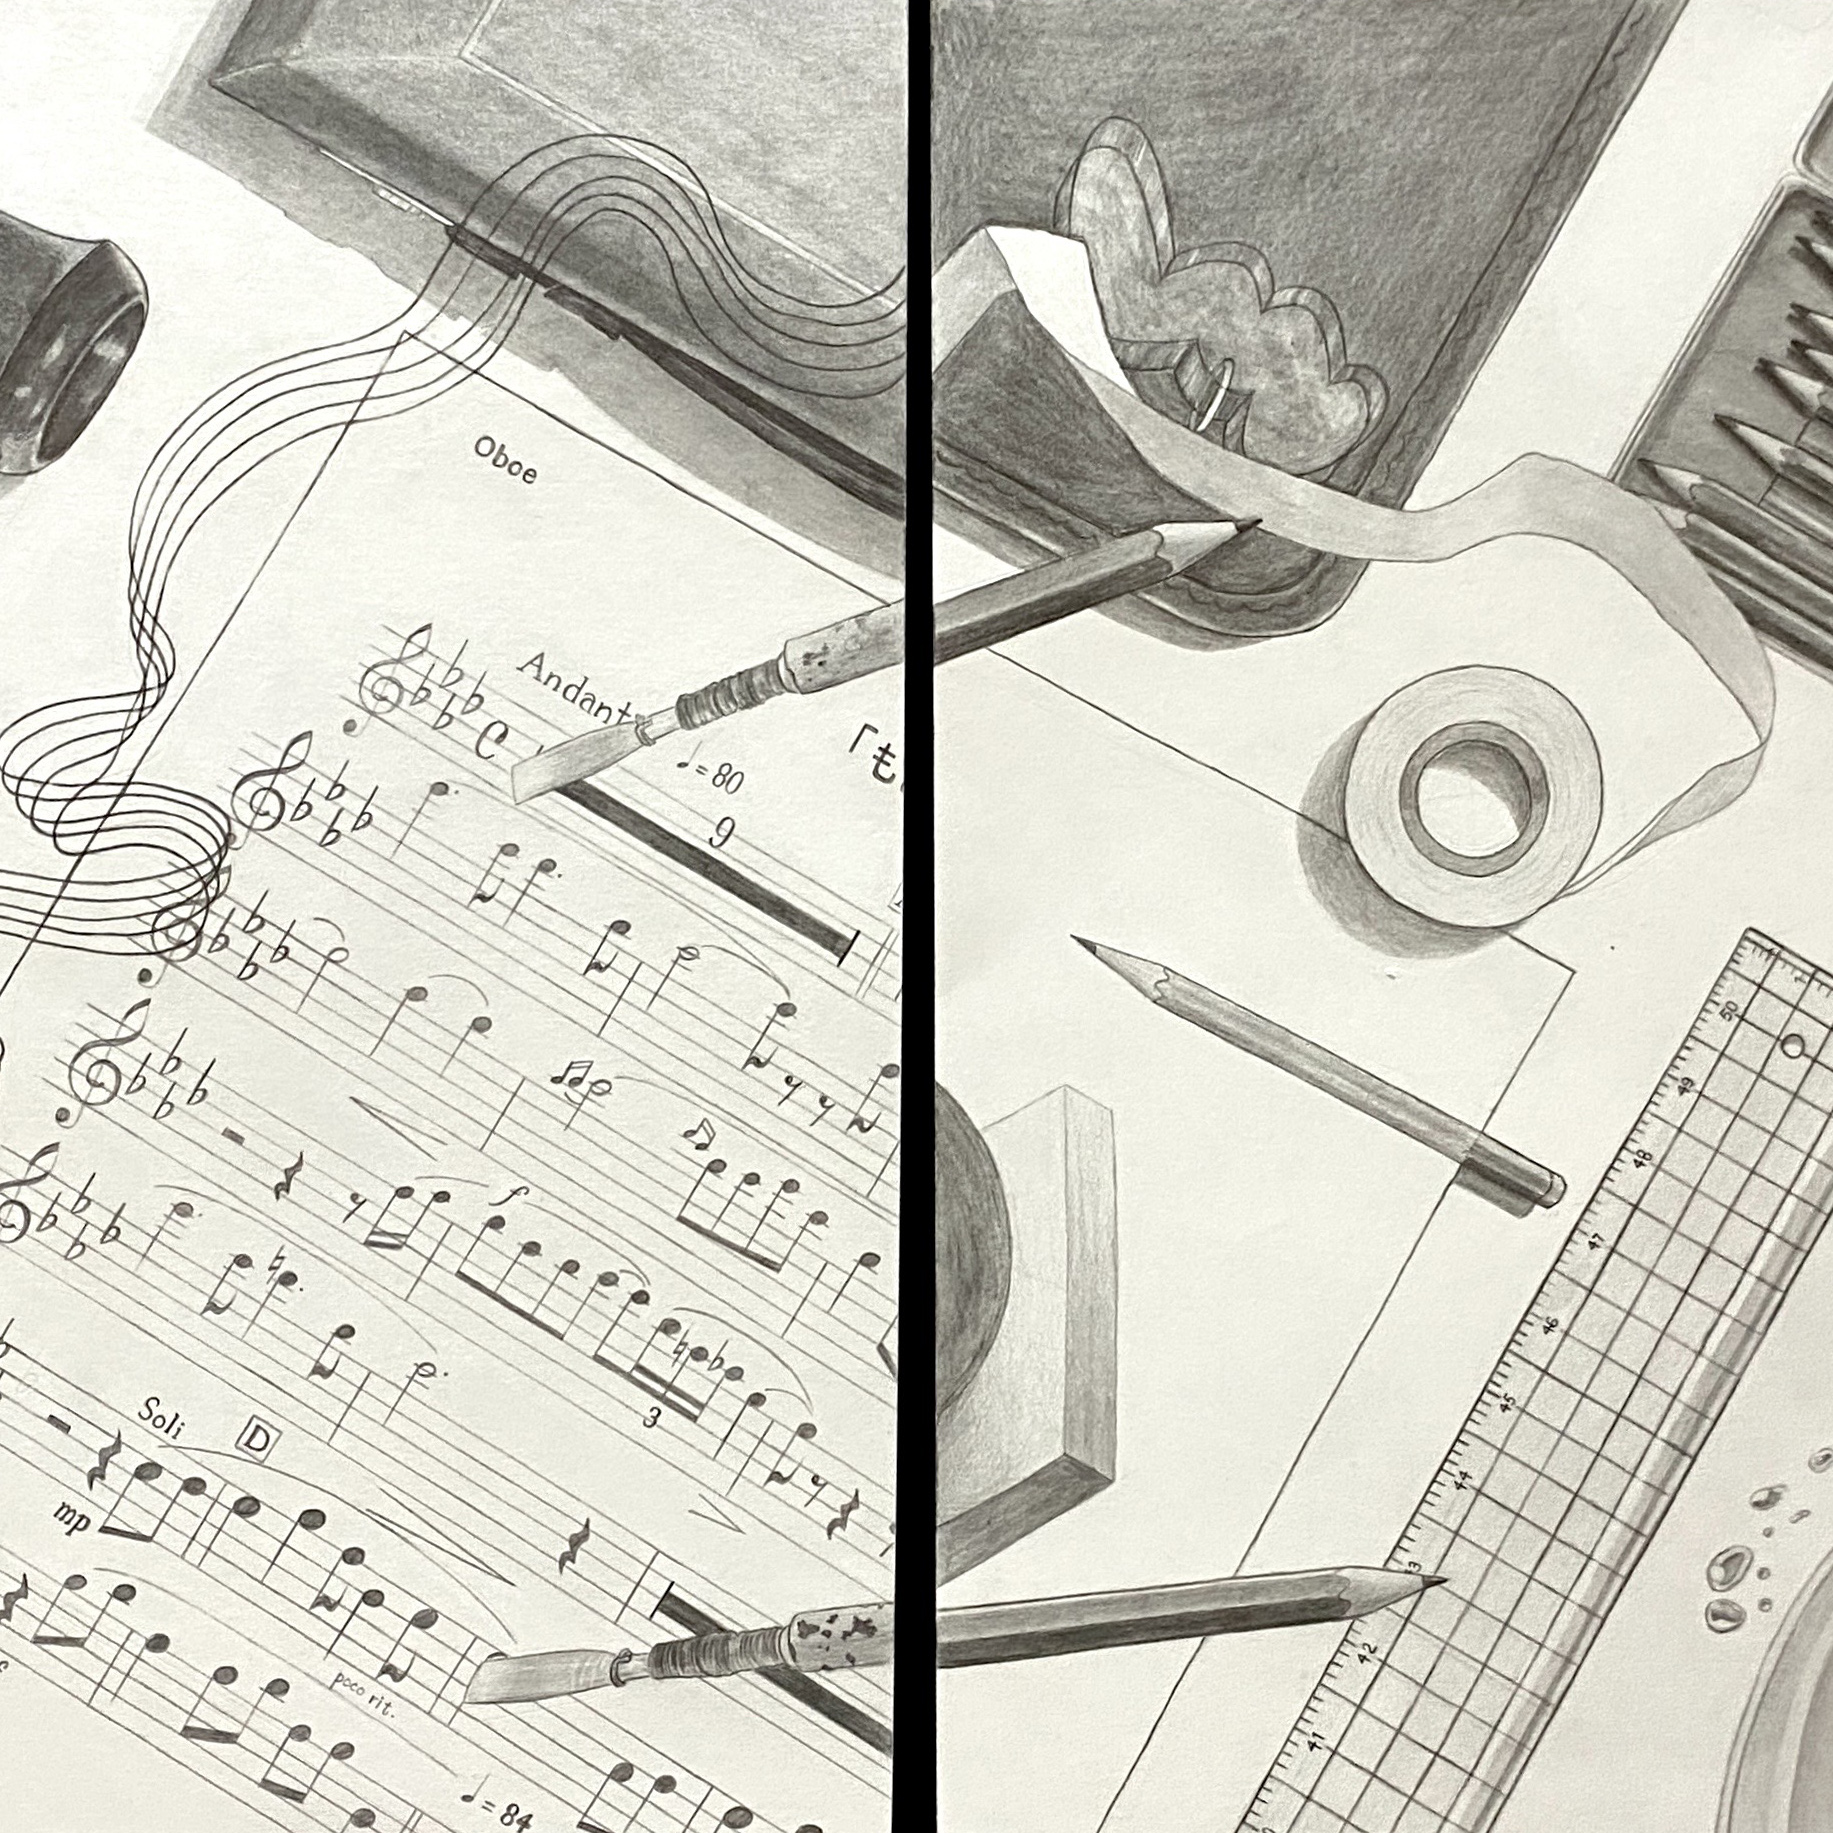 Oboe
Andante
♩=80
「も
9
f
3
Soli
D
mp
poco rit.
♩=84
50
49
48
47
46
45
44
3
42
41